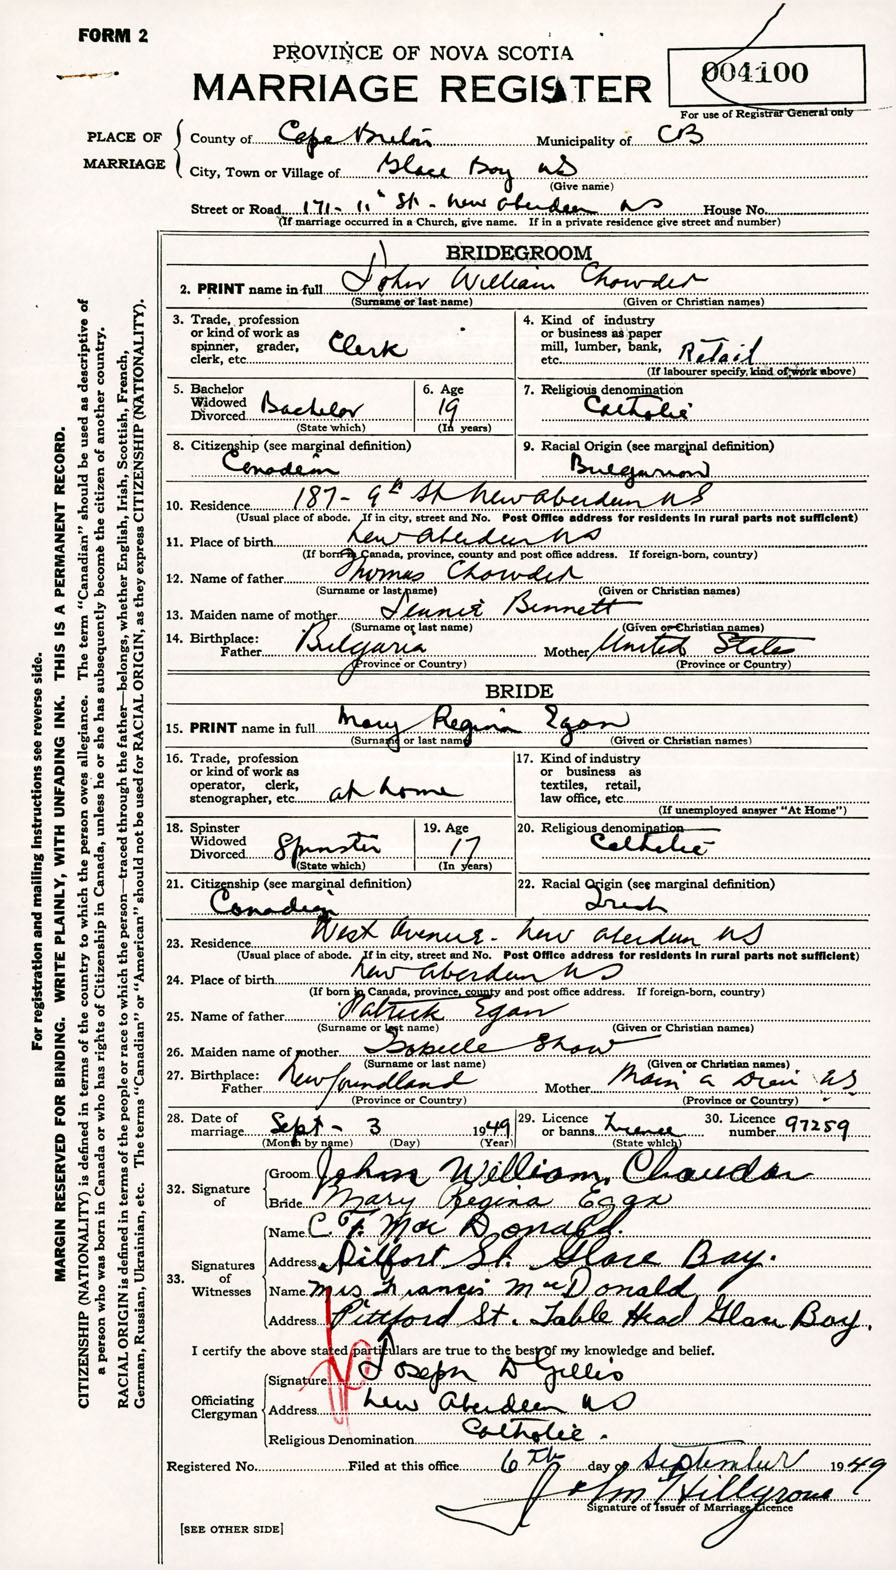 FORM 2
PROVINCE OF NOVA SCOTIA
MARRIAGE REGISTER
004100
For use of Registrar General only
PLACE OF MARRIAGE
County of Cape Breton Municipality of CB
City, Town or Village of Glace Bay NS
(Give name)
Street or Road 171 - 11th St - New Aberdeen NS House No.
(If marriage occurred in a Church, give name. If in a private residence give street and number)
BRIDEGROOM
2. PRINT name in full John William Chowder
(Surname or last name) (Given or Christian names)
3. Trade, profession or kind of work as spinner, grader, clerk, etc. Clerk
4. Kind of industry or business as paper mill, lumber, bank, etc. Retail
(If labourer specify kind of work above)
5. Bachelor Widowed Divorced Bachelor
(State which)
6. Age 19
(In years)
7. Religious denomination Catholic
8. Citizenship (see marginal definition) Canadian
9. Racial Origin (see marginal definition) Bulgarian
10. Residence 187 - 9th St New Aberdeen NS
(Usual place of abode. If in city, street and No. Post Office address for residents in rural parts not sufficient)
11. Place of birth New Aberdeen NS
(If born in Canada, province, county and post office address. If foreign-born, country)
12. Name of father Thomas Chowder
(Surname or last name) (Given or Christian names)
13. Maiden name of mother Jennie Bennett
(Surname or last name) (Given or Christian names)
14. Birthplace: Father Bulgaria Mother United States
(Province or Country) (Province or Country)
BRIDE
15. PRINT name in full Mary Regina Egan
(Surname or last name) (Given or Christian names)
16. Trade, profession or kind of work as operator, clerk, stenographer, etc. at home
17. Kind of industry or business as textiles, retail, law office, etc.
(If unemployed answer "At Home")
18. Spinster Widowed Divorced Spinster
(State which)
19. Age 17
(In years)
20. Religious denomination Catholic
21. Citizenship (see marginal definition) Canadian
22. Racial Origin (see marginal definition) Irish
23. Residence West Avenue - New Aberdeen NS
(Usual place of abode. If in city, street and No. Post Office address for residents in rural parts not sufficient)
24. Place of birth New Aberdeen NS
(If born in Canada, province, county and post office address. If foreign-born, country)
25. Name of father Patrick Egan
(Surname or last name) (Given or Christian names)
26. Maiden name of mother Isabelle Shaw
(Surname or last name) (Given or Christian names)
27. Birthplace: Father Newfoundland Mother Main a Dieu NS
(Province or Country) (Province or Country)
28. Date of marriage Sept - 3 1949
(Month by name) (Day) (Year)
29. Licence or banns License
(State which)
30. Licence number 97259
32. Signature of
Groom John William Chowder
Bride Mary Regina Egan
33. Signatures of Witnesses
Name C. F. Mac Donald.
Address Pitfort St. Glace Bay.
Name Mrs Francis MacDonald
Address Pittford St. Table Head Glace Bay.
I certify the above stated particulars are true to the best of my knowledge and belief.
Officiating Clergyman
Signature Joseph D Gillis
Address New Aberdeen NS
Religious Denomination Catholic.
Registered No. Filed at this office 6th day of September 1949
John Hillgrove
Signature of Issuer of Marriage Licence
[SEE OTHER SIDE]
For registration and mailing instructions see reverse side.
MARGIN RESERVED FOR BINDING. WRITE PLAINLY, WITH UNFADING INK. THIS IS A PERMANENT RECORD.
CITIZENSHIP (NATIONALITY) is defined in terms of the country to which the person owes allegiance. The term "Canadian" should be used as descriptive of
a person who was born in Canada or who has rights of Citizenship in Canada, unless he or she has subsequently become the citizen of another country.
RACIAL ORIGIN is defined in terms of the people or race to which the person—traced through the father—belongs, whether English, Irish, Scottish, French,
German, Russian, Ukrainian, etc. The terms "Canadian" or "American" should not be used for RACIAL ORIGIN, as they express CITIZENSHIP (NATIONALITY).